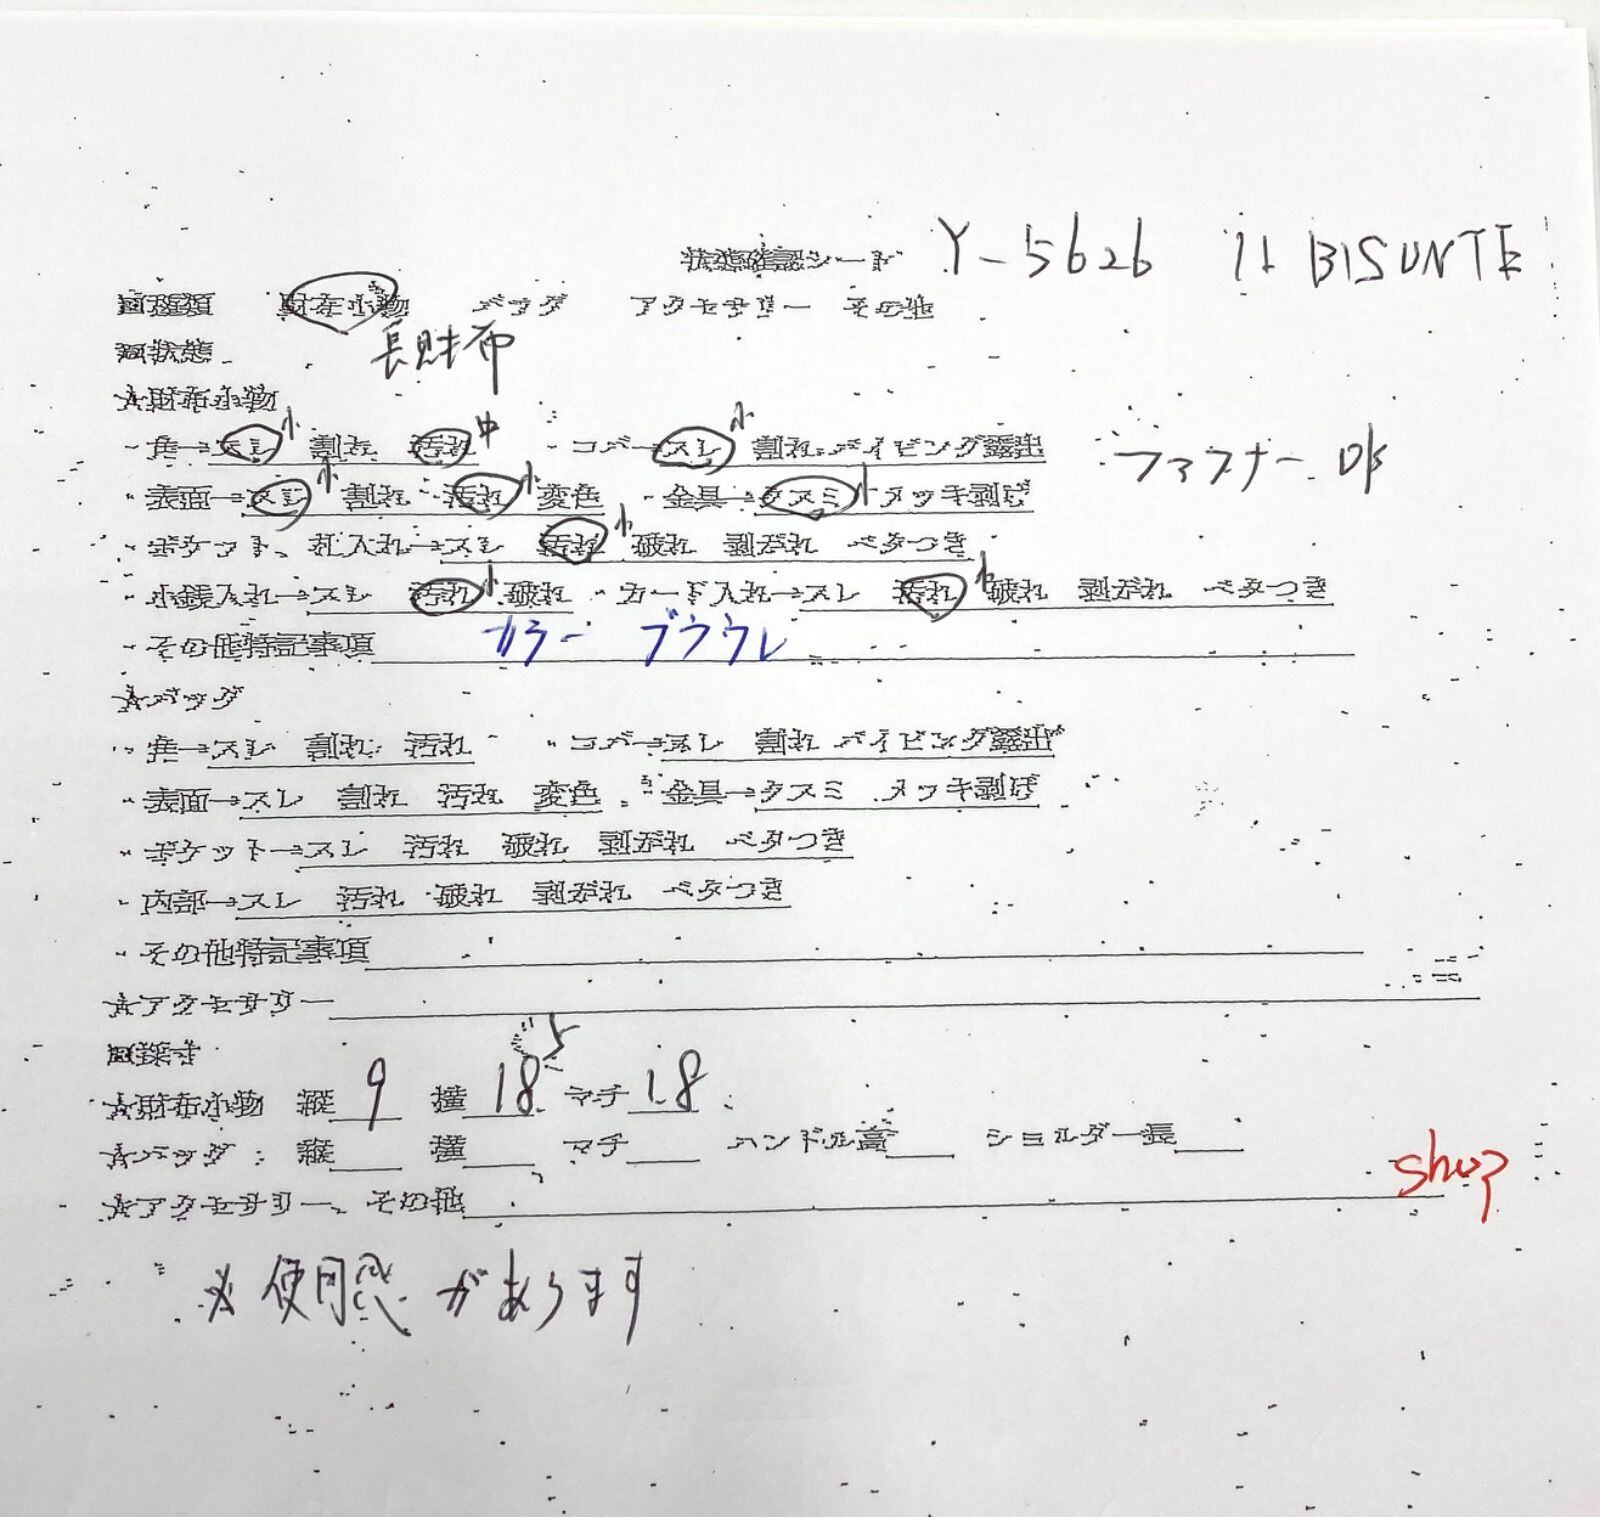 状態確認シート Y-5626 Il BISUNTE
種類 財布小物 バッグ アクセサリー その他
状態 長財布
☆財布小物
・角→スレ小 割れ 汚れ中 ・コバ→スレ小 割れ パイピング露出
ファスナー OK
・表面→スレ小 割れ 汚れ小 変色 ・金具→クスミ小 メッキ剥げ
・ポケット、札入れ→スレ 汚れ小 破れ 剥がれ ベタつき
・小銭入れ→スレ 汚れ小 破れ ・カード入れ→スレ 汚れ小 破れ 剥がれ ベタつき
・その他特記事項 カラー ブラウン
☆バッグ
・角→スレ 割れ 汚れ ・コバ→スレ 割れ パイピング露出
・表面→スレ 割れ 汚れ 変色 ・金具→クスミ メッキ剥げ
・ポケット→スレ 汚れ 破れ 剥がれ ベタつき
・内部→スレ 汚れ 破れ 剥がれ ベタつき
・その他特記事項
☆アクセサリー
採寸
☆財布小物 縦 9 横 18.5 マチ 1.8
☆バッグ: 縦 横 マチ ハンドル高 ショルダー長
☆アクセサリー、その他
shop
※使用感があります